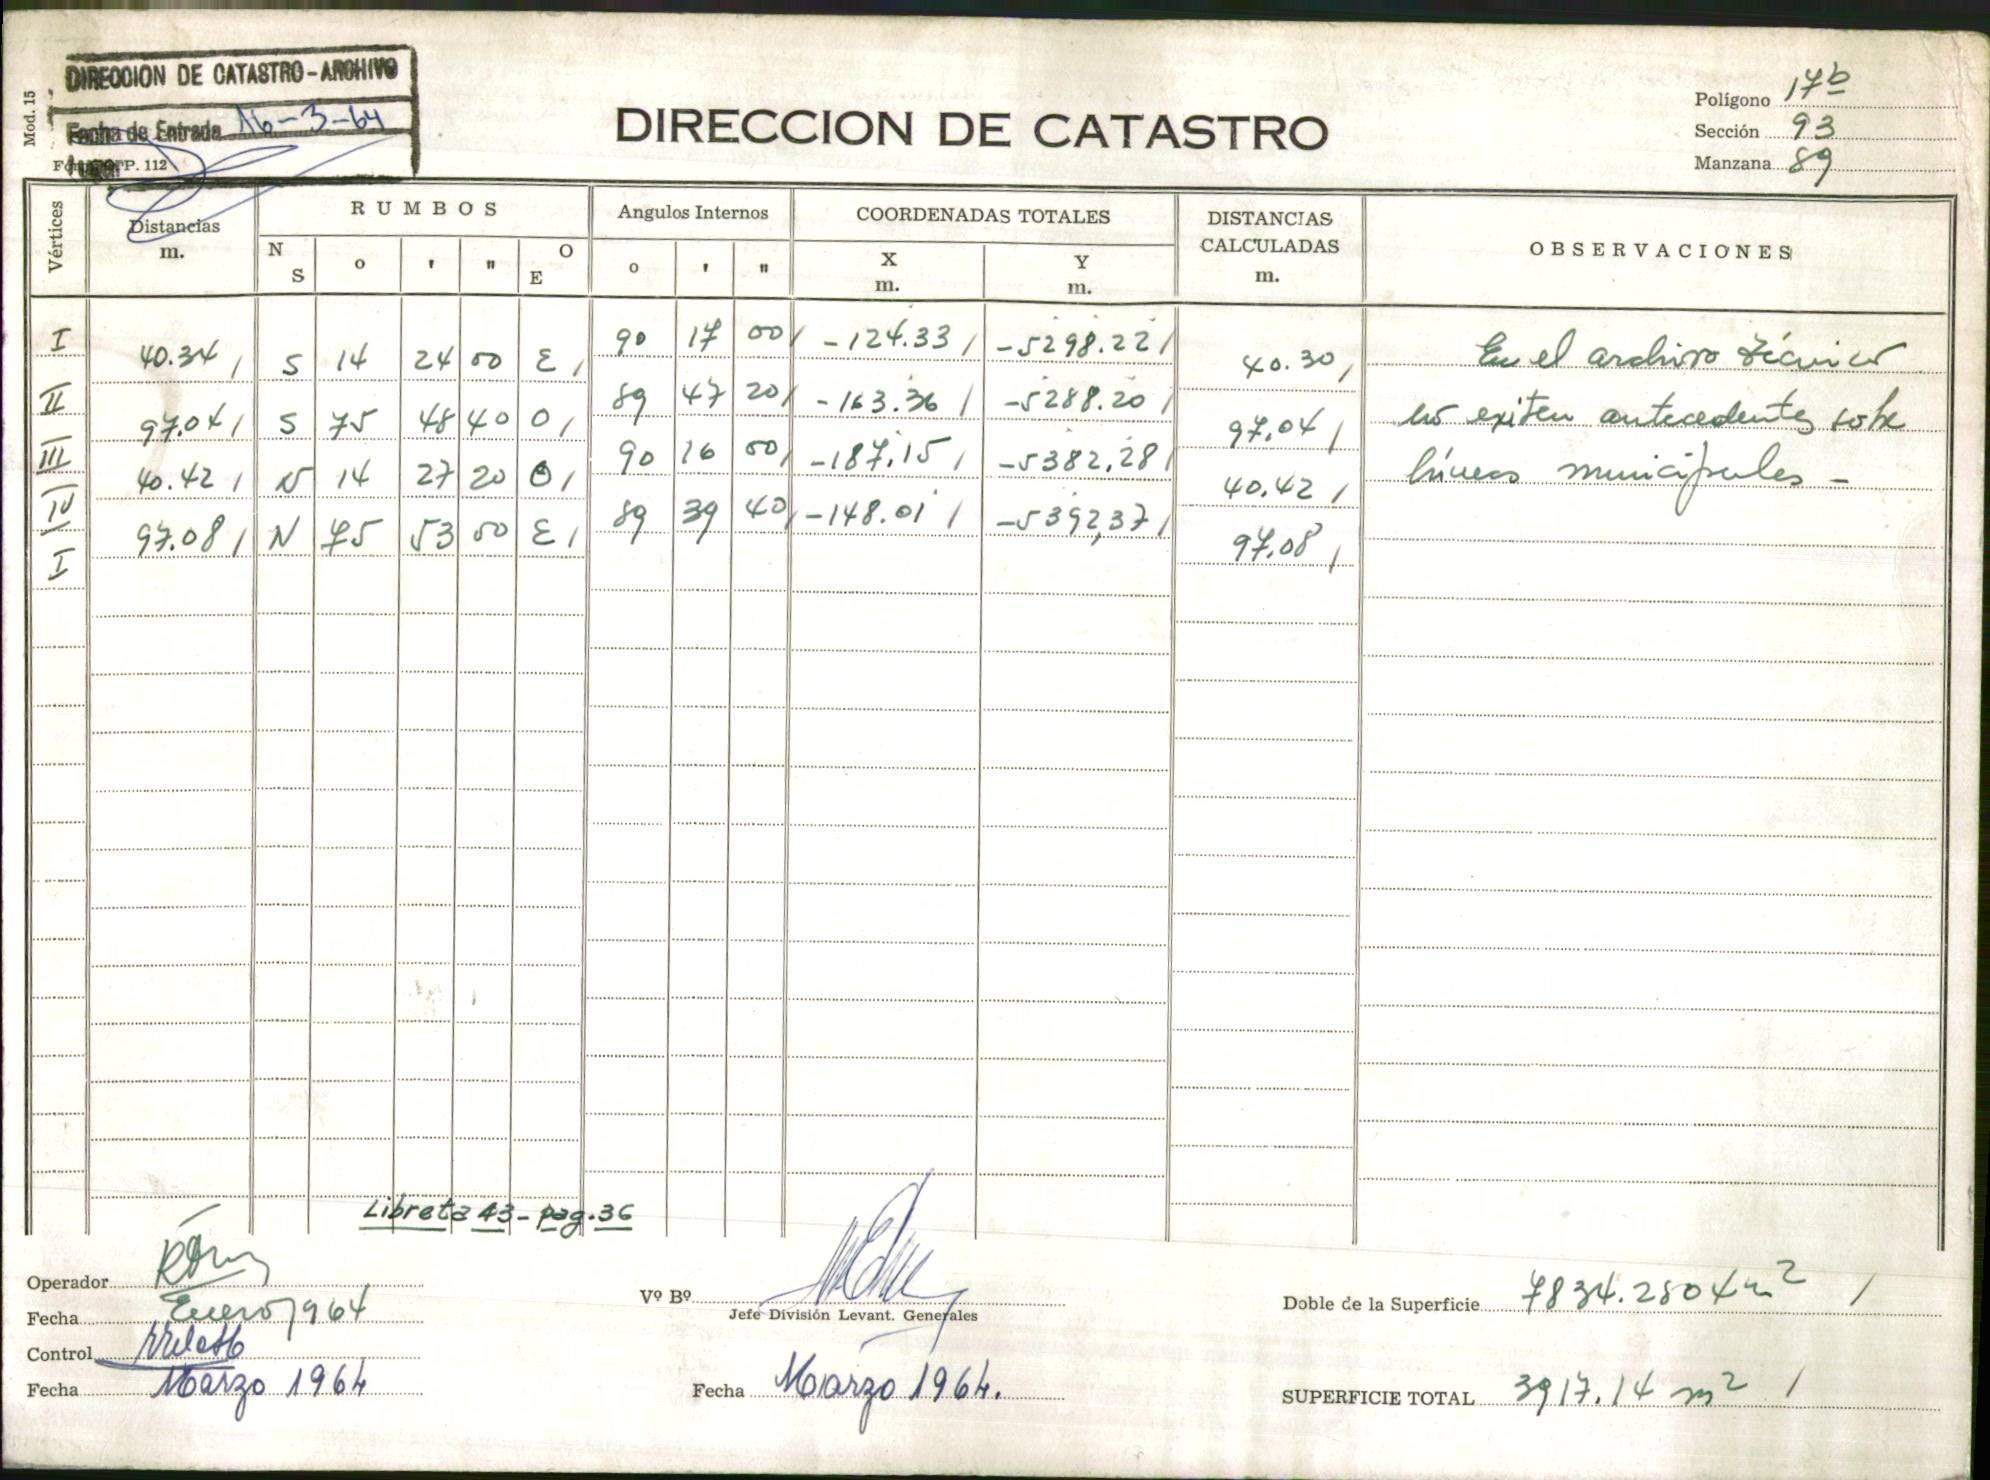 Mod. 15
DIRECCION DE CATASTRO - ARCHIVO
Fecha de Entrada 16-3-64
P. 112
DIRECCION DE CATASTRO
Polígono 17b
Sección 93
Manzana 89
Vértices Distancias m. RUMBOS N S o ' " O E Angulos Internos o ' " COORDENADAS TOTALES X m. Y m. DISTANCIAS CALCULADAS m. OBSERVACIONES
I 90 17 00 -124.33 -5298.22
40.34 S 14 24 00 E 40.30 En el archivo técnico
II 89 47 20 -163.36 -5288.20
97.04 S 75 48 40 O 97.04 no exiten antecedentes sobre
III 90 16 00 -187.15 -5382,28
40.42 N 14 27 20 O 40.42 líneas municipales -
IV 89 39 40 -148.01 -5392,37
97.08 N 75 53 00 E 97.08
I
Libreta 43 - pag. 36
Operador
Fecha Enero 1964
Control
Fecha Marzo 1964
Vº Bº
Jefe División Levant. Generales
Fecha Marzo 1964.
Doble de la Superficie 7834.2804 m2
SUPERFICIE TOTAL 3917.14 m2